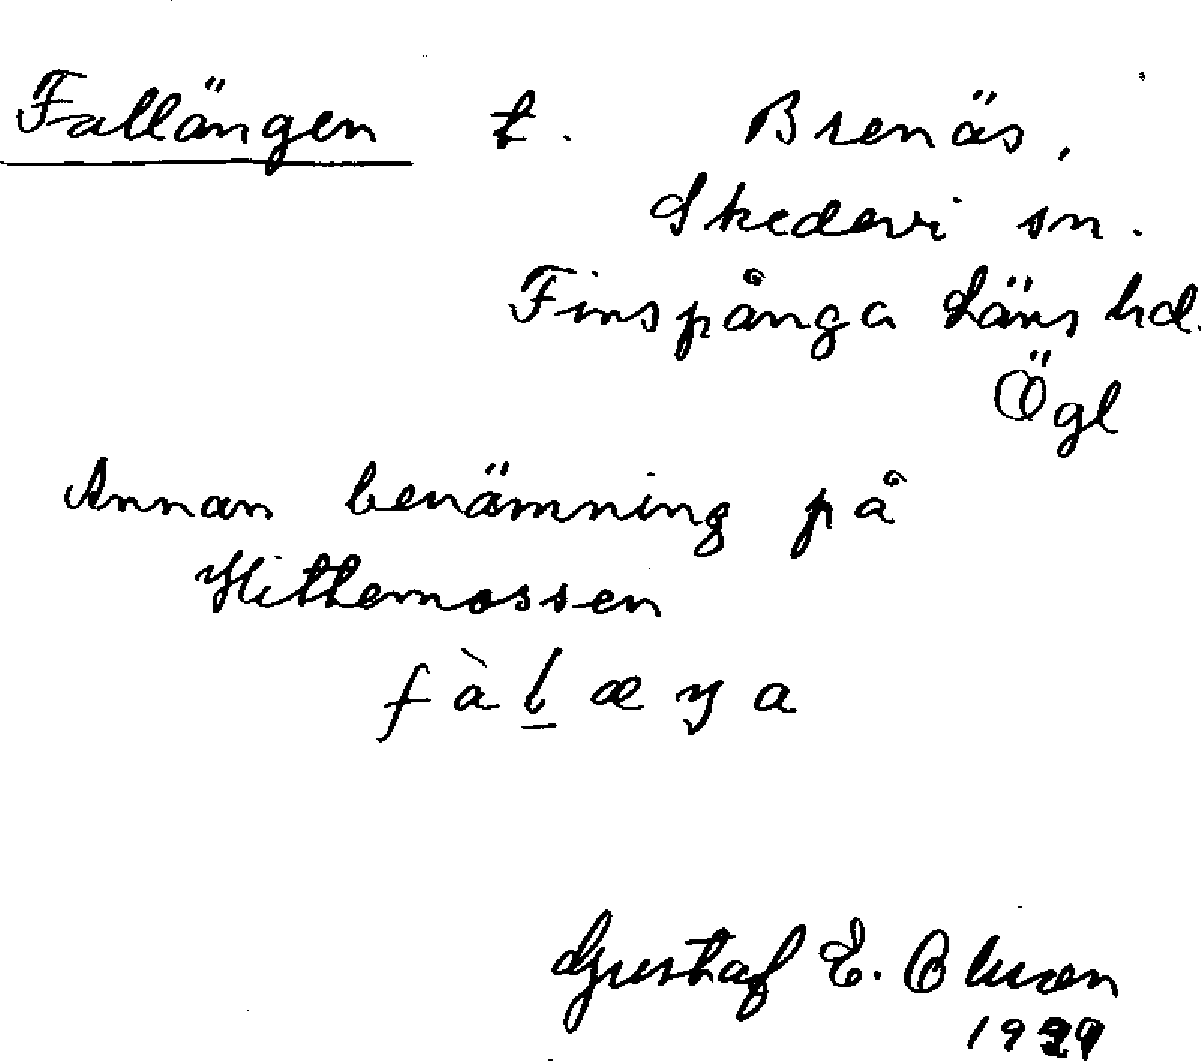 Fallängen t. Brenäs,
Skedevi sn.
Finspånga Läns hd.
Ögl
Annan benämning på
Hittemossen
fàlæŋa
Gustaf E. Olsson